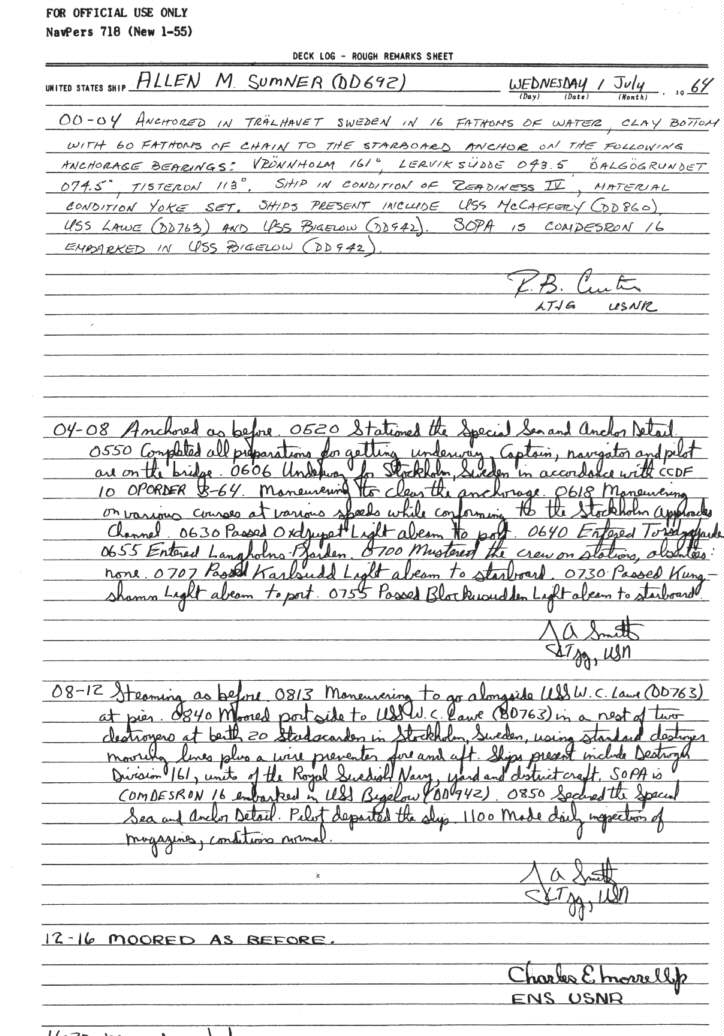 FOR OFFICIAL USE ONLY
NavPers 718 (New 1-55)
DECK LOG - ROUGH REMARKS SHEET
UNITED STATES SHIP ALLEN M. SUMNER (DD692) WEDNESDAY 1 July, 19 64
(Day) (Date) (Month)
00-04 ANCHORED IN TRÄLHAVET SWEDEN IN 16 FATHOMS OF WATER, CLAY BOTTOM
WITH 60 FATHOMS OF CHAIN TO THE STARBOARD ANCHOR ON THE FOLLOWING
ANCHORAGE BEARINGS: VRÖNNHOLM 161°, LERVIKSÜDDE 093.5 ÖALGÖGRUNDET
074.5°, TISTERON 113°. SHIP IN CONDITION OF READINESS IV, MATERIAL
CONDITION YOKE SET. SHIPS PRESENT INCLUDE USS McCAFFERY (DD860),
USS LAWE (DD763) AND USS BIGELOW (DD942). SOPA IS COMDESRON 16
EMBARKED IN USS BIGELOW (DD942).
R.B.
LTJG USNR
04-08 Anchored as before. 0520 Stationed the Special Sea and Anchor Detail
0550 Completed all preparations for getting underway, Captain, navigator and pilot
are on the bridge. 0606 Underway for Stockholm, Sweden in accordance with CCDF
10 OPORDER 8-64. Maneuvering to clear the anchorage. 0618 Maneuvering
on various courses at various speeds while conforming to the Stockholm approaches
Channel. 0630 Passed Oxdjupet Light abeam to port. 0640 Entered
0655 Entered Langholms-Fjarden. 0700 Mustered the crew on stations, absentees:
none. 0707 Passed Karlsudd Light abeam to starboard. 0730 Passed Kung-
shamn Light abeam to port. 0755 Passed Blockhusudden Light abeam to starboard.
J A Smith
LTjg, USN
08-12 Steaming as before. 0813 Maneuvering to go alongside USS W.C. Lawe (DD763)
at pier. 0840 Moored port side to USS W.C. Lawe (DD763) in a nest of two
destroyers at berth 20 Stadsgarden in Stockholm, Sweden, using standard destroyer
mooring lines plus a wire preventer fore and aft. Ships present include Destroyer
Division 161, units of the Royal Swedish Navy, yard and district craft. SOPA is
COMDESRON 16 embarked in USS Bigelow (DD942). 0850 Secured the Special
Sea and Anchor Detail. Pilot departed the ship. 1100 Made daily inspection of
magazines, conditions normal.
J A Smith
LTjg, USN
12-16 MOORED AS BEFORE.
Charles E Morrell Jr
ENS USNR